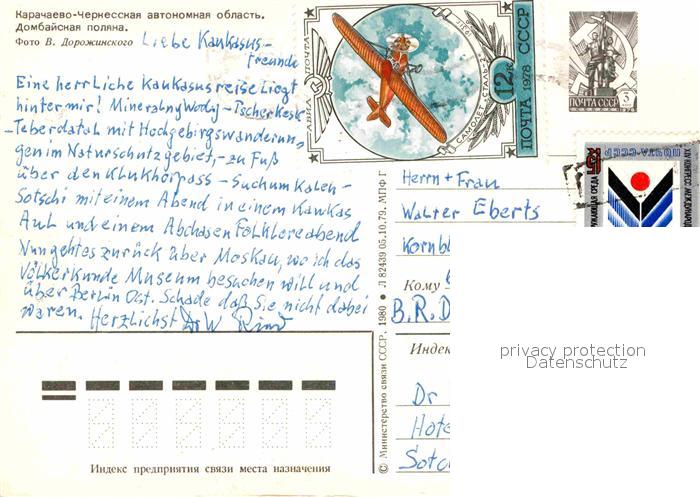 Карачаево-Черкесская автономная область.
Домбайская поляна.
Фото В. Дорожинского
Liebe Kaukasus-
freunde
Eine herrliche Kaukasusreise liegt
hinter mir! Mineralny Wody – Tscherkesk
– Teberdatal mit Hochgebirgswanderun-
gen im Naturschutzgebiet, – zu Fuß
über den Klukhorpass – Suchum Kalen –
Sotschi mit einem Abend in einem Kaukas
Aul und einem Abchasen Folkloreabend
Nun geht es zurück über Moskau, wo ich das
Völkerkunde Museum besuchen will und
über Berlin Ost. Schade daß Sie nicht dabei
waren. Herzlichst Dr W
АВИА ПОЧТА
САМОЛЕТ СТАЛЬ-2
12к
ПОЧТА СССР
1978
ПОЧТА СССР 3
ПОЧТА·СССР
XIV КОНГРЕСС МЕЖДУНАРОД
Herrn + Frau
Walter Eberts
Kornbl
Кому
B.R.D
Индек
Dr
Hote
Sotc
© Министерство связи СССР. 1980 ● Л 82439 05.10.79. МПФ Г
Индекс предприятия связи места назначения
privacy protection
Datenschutz